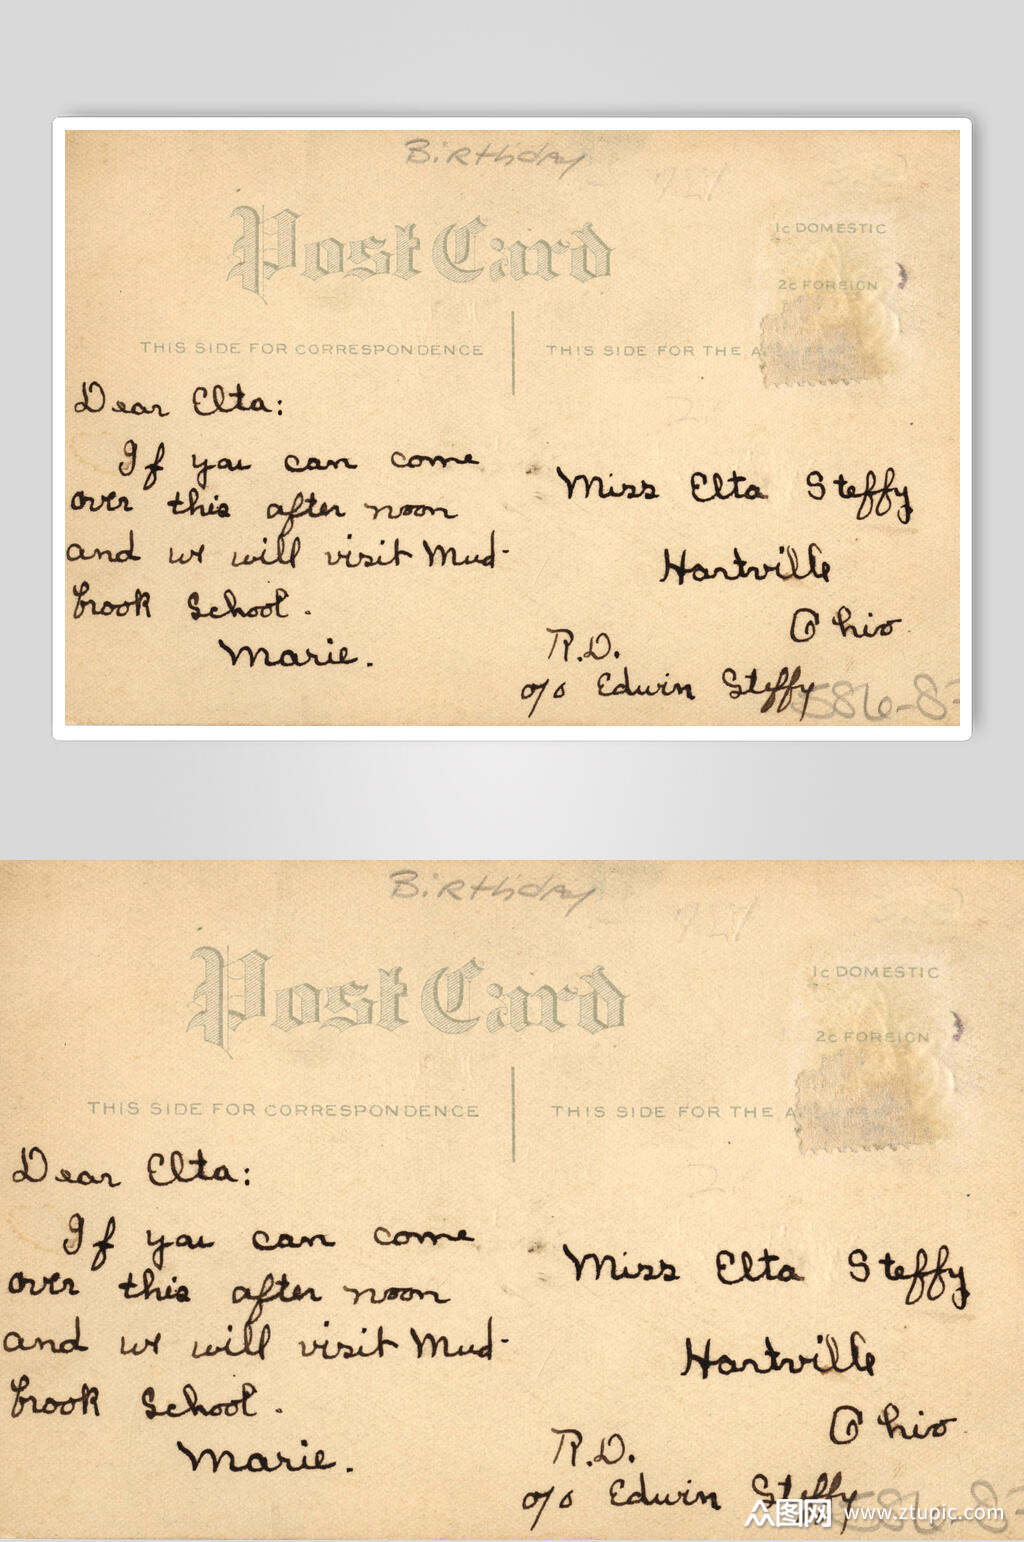 Birthday
Post Card
1c DOMESTIC
2c FOREIGN
THIS SIDE FOR CORRESPONDENCE
THIS SIDE FOR THE
Dear Elta:
If you can come
over this after noon
and we will visit Mud-
brook School.
Marie.
Miss Elta Steffy
Hartville
Ohio
R.D.
c/o Edwin Steffy
586-8
Birthday
Post Card
1c DOMESTIC
2c FOREIGN
THIS SIDE FOR CORRESPONDENCE
THIS SIDE FOR THE
Dear Elta:
If you can come
over this after noon
and we will visit Mud-
brook School.
Marie.
Miss Elta Steffy
Hartville
Ohio
R.D.
c/o Edwin Steffy
586-8
众图网 www.ztupic.com